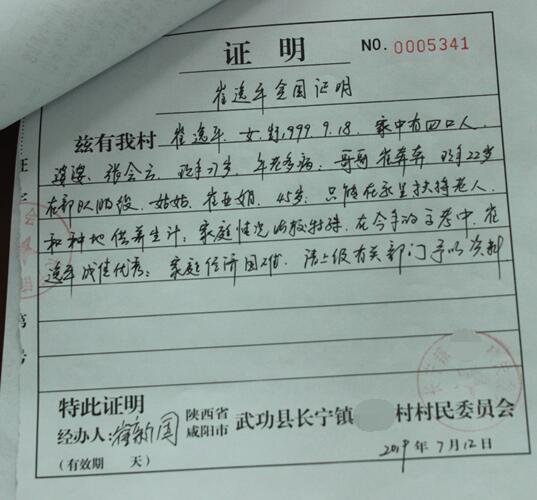 证明
NO. 0005341
崔逸年贫困证明
兹有我村 崔逸年. 女. 于1999.9.18. 家中有四口人
婆婆. 张会云. 现年71岁. 年老多病; 哥哥 崔奔奔 现年22岁
在部队服役. 姑姑. 崔亚娟. 45岁. 只能在家里扶持老人.
和种地供养生计; 家庭情况比较特殊. 在今年的高考中. 崔
逸年成绩优秀; 家庭经济困难. 请上级有关部门予以资助
特此证明
经办人: 崔新国
陕西省
咸阳市
武功县长宁镇
村村民委员会
(有效期 天)
2019年7月12日